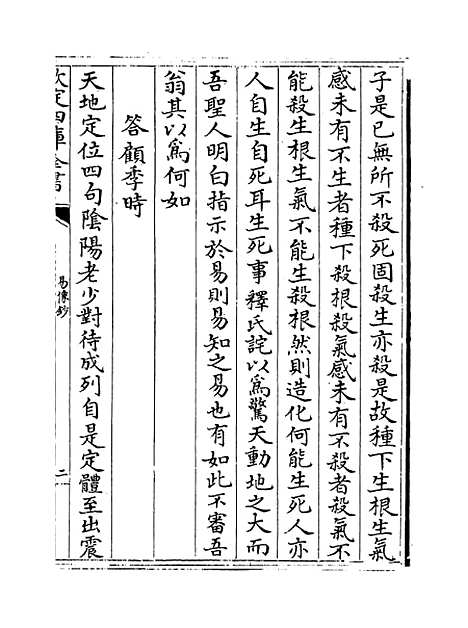 子是已無所不殺死固殺生亦殺是故種下生根生氣
感未有不生者種下殺根殺氣感未有不殺者殺氣不
能殺生根生氣不能生殺根然則造化何能生死人亦
人自生自死耳生死事釋氏詫以為驚天動地之大而
吾聖人明白指示於易則易知之易也有如此不審吾
翁其以為何如
答顧季時
天地定位四句陰陽老少對待成列自是定體至出震
欽定四庫全書
易像鈔
二